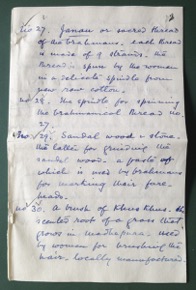 No 27. Janau or sacred thread
of the brahmans. each thread
is made of 9 strands. the
thread is spun by the women
in a delicate spindle from
new raw cotton.
no 28. the spindle for spinning
the brahmanical thread no.
27.
No 29. Sandal wood & stone.
the latter for grinding the
sandal wood - a paste of
which is used by brahmans
for marking their fore-
heads.
no 30. A brush of Khus Khus. the
scented root of a grass that
grows in
used by women for brushing the
hair, locally manufactured.